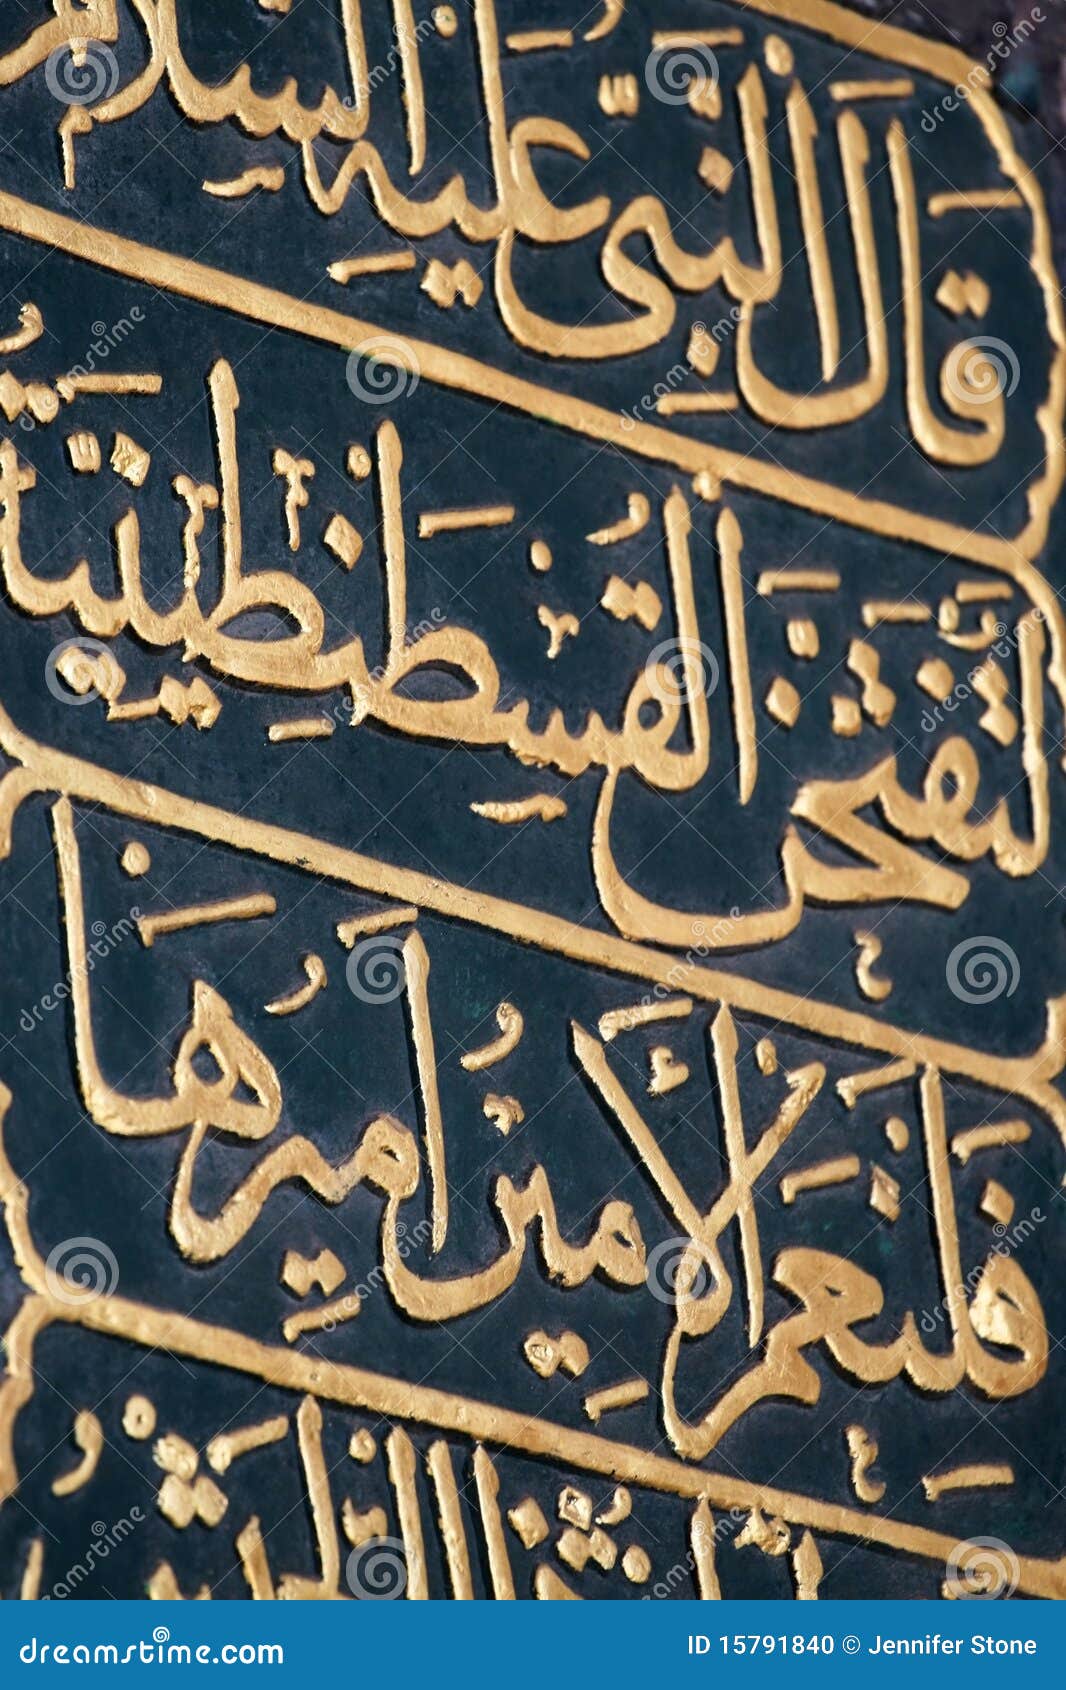 قَالَ النَّبِيُّ عَلَيْهِ السَّلَامُ
لَتُفْتَحَنَّ الْقُسْطَنْطِينِيَّةُ
فَلَنِعْمَ الْأَمِيرُ أَمِيرُهَا
dreamstime.com
ID 15791840 © Jennifer Stone